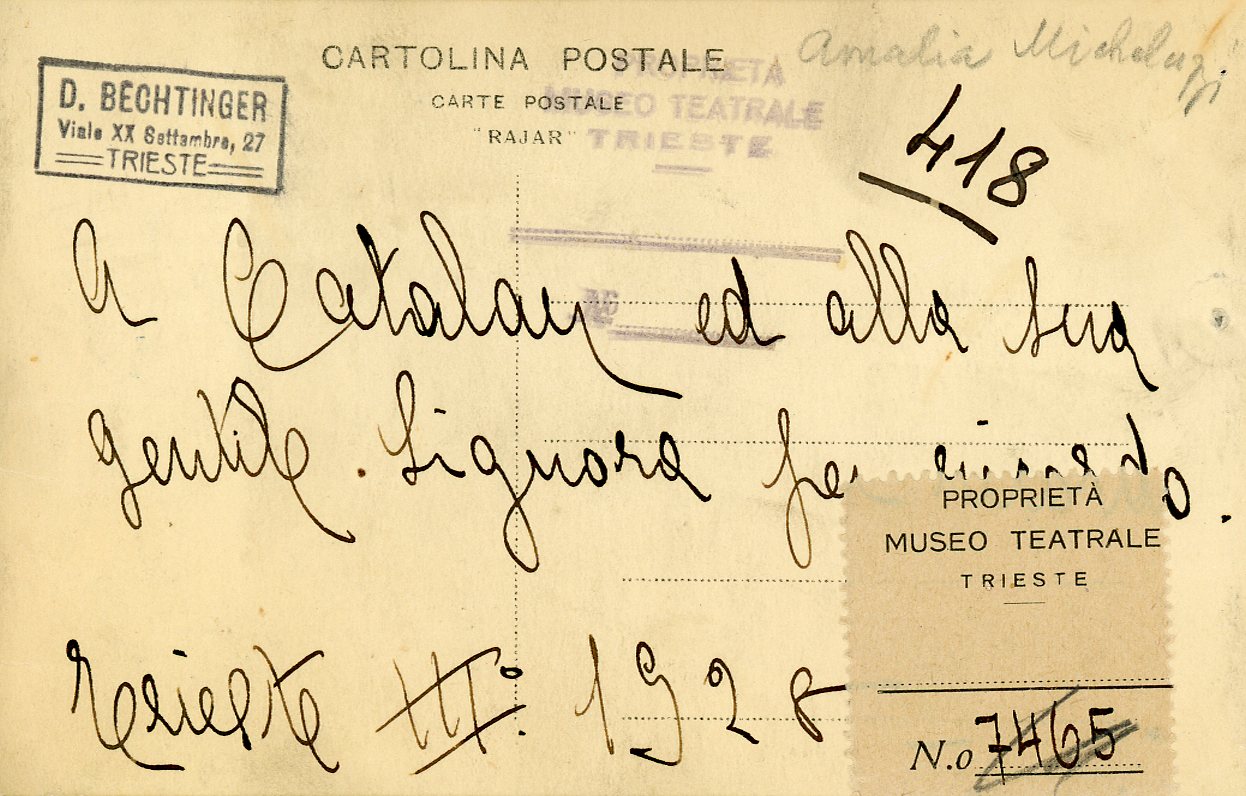 CARTOLINA POSTALE
Amalia Micheluzzi
D. BECHTINGER
Viale XX Settembre, 27
TRIESTE
CARTE POSTALE
"RAJAR"
PROPRIETÀ
MUSEO TEATRALE
TRIESTE
No
418
A Catalan ed alla sua
gentile Signora per ricordo.
Trieste III° 1928
PROPRIETÀ
MUSEO TEATRALE
TRIESTE
N.o 7465